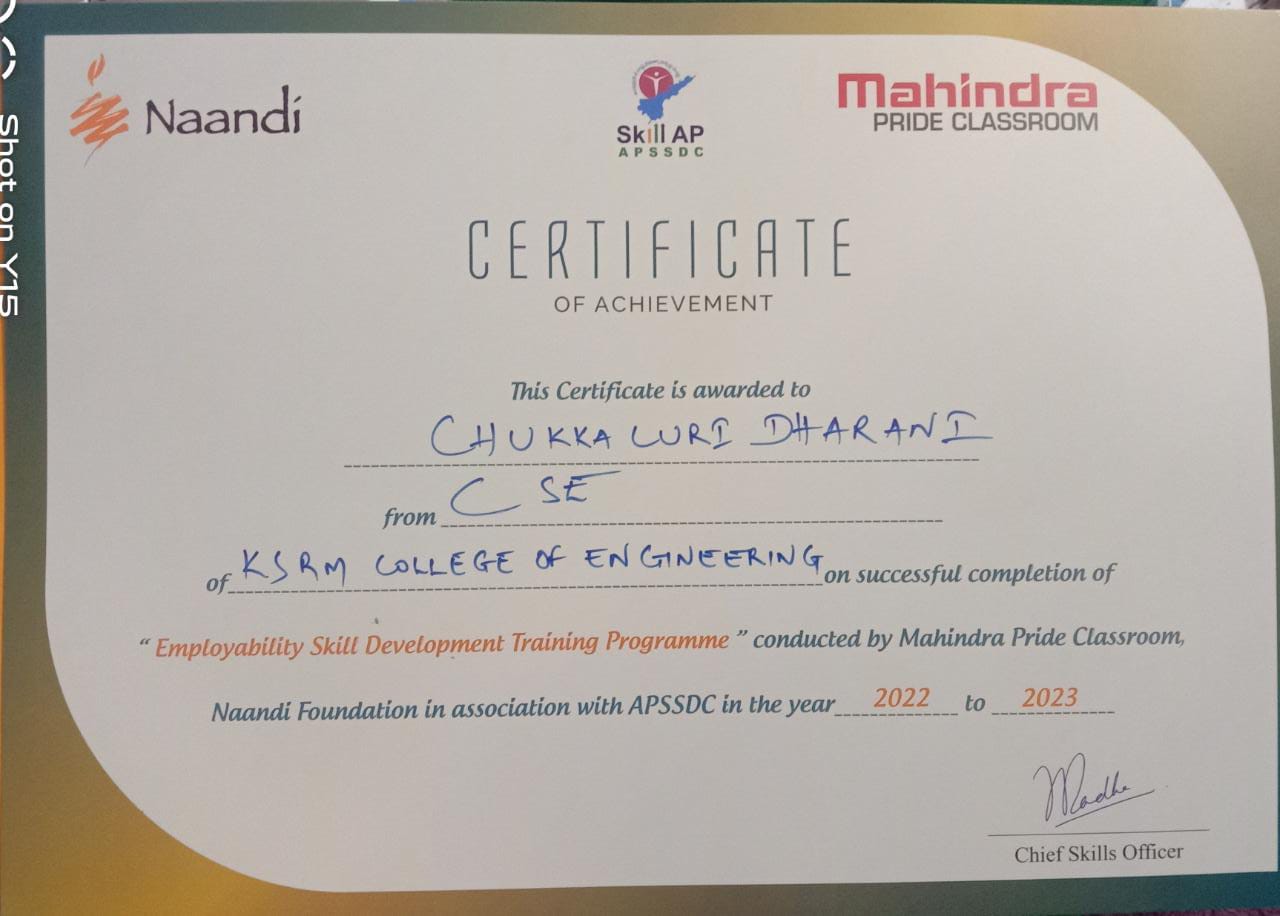 Naandi
Skill AP
APSSDC
Mahindra
PRIDE CLASSROOM
CERTIFICATE
OF ACHIEVEMENT
This Certificate is awarded to
CHUKKALURI DHARANI
from CSE
of KSRM COLLEGE OF ENGINEERING on successful completion of
“ Employability Skill Development Training Programme ” conducted by Mahindra Pride Classroom,
Naandi Foundation in association with APSSDC in the year 2022 to 2023
Chief Skills Officer
Shot on Y15